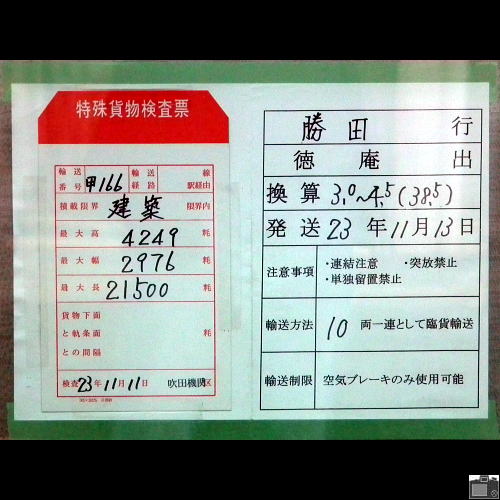 特殊貨物検査票
輸送番号 甲166 輸送経路 線駅経由
積載限界 建築 限界内
最大高 4249 粍
最大幅 2976 粍
最大長 21500 粍
貨物下面
と軌条面 粍
との間隔
検査 23年11月11日 吹田機関区
勝田 行
徳庵 出
換算 3.0~4.5(38.5)
発送 23年11月13日
注意事項 ・連結注意 ・突放禁止
・単独留置禁止
輸送方法 10 両一連として臨貨輸送
輸送制限 空気ブレーキのみ使用可能